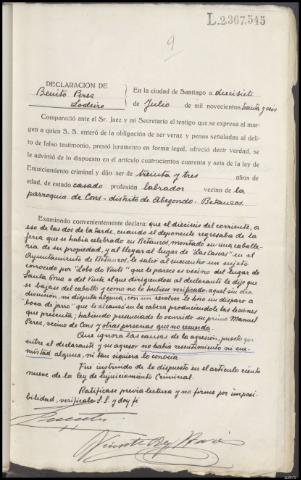 L.2367.545
9
DECLARACION DE
Benito Perez
Lodeiro
En la ciudad de Santiago a diecisiete
de Julio de mil novecientos treinta y seis
Compareció ante el Sr. Juez y mi Secretario el testigo que se expresa al mar-
gen a quien S. S. enteró de la obligación de ser veraz y penas señaladas al deli-
to de falso testimonio, prestó juramento en forma legal, ofreció decir verdad, se
le advirtió de lo dispuesto en el artículo cuatrocientos cuarenta y seis de la ley de
Enjuiciamiento criminal y dijo ser de treinta y tres años de
edad, de estado casado profesión labrador vecino de la
parroquia de Cons - distrito de Abegondo - Betanzos.
Examinado convenientemente declara que el dieciseis del corriente, a
eso de las dos de la tarde, cuando el deponente regresaba de la
feria que se había celebrado en Betanzos, montado en una caballe-
ria de su propiedad, y al llegar al lugar de "Las Cascas" en el
Ayuntamiento de Betanzos, le salió al encuentro un sujeto
conocido por "Lobo da Viña" que le parece es vecino del lugar de
Santa Cruz o del Viñal el que dirigiendose al declarante le dijo que
se bajase del caballo y como no lo hubiese verificado aquel sin dis-
cusion, ni disputa alguna, con un revolver le hizo un disparo a
"boca de jaro" que le alcanzó en la cabeza produciendole las lesiones
que presenta; habiendo presenciado lo ocurrido su primo Manuel
Perez, vecino de Cons y otras personas que no recuerda.
Que ignora las causas de la agresion, puesto que
entre el declarante y su agresor no había resentimiento ni ene-
mistad alguna, ni tan siquiera lo conocia
Fue instruido de lo dispuesto en el artículo ciento
nueve de la ley de Enjuiciamiento Criminal.
Ratificase previa lectura y no firma por imposi-
bilidad, verificalo S. S. y doy fe